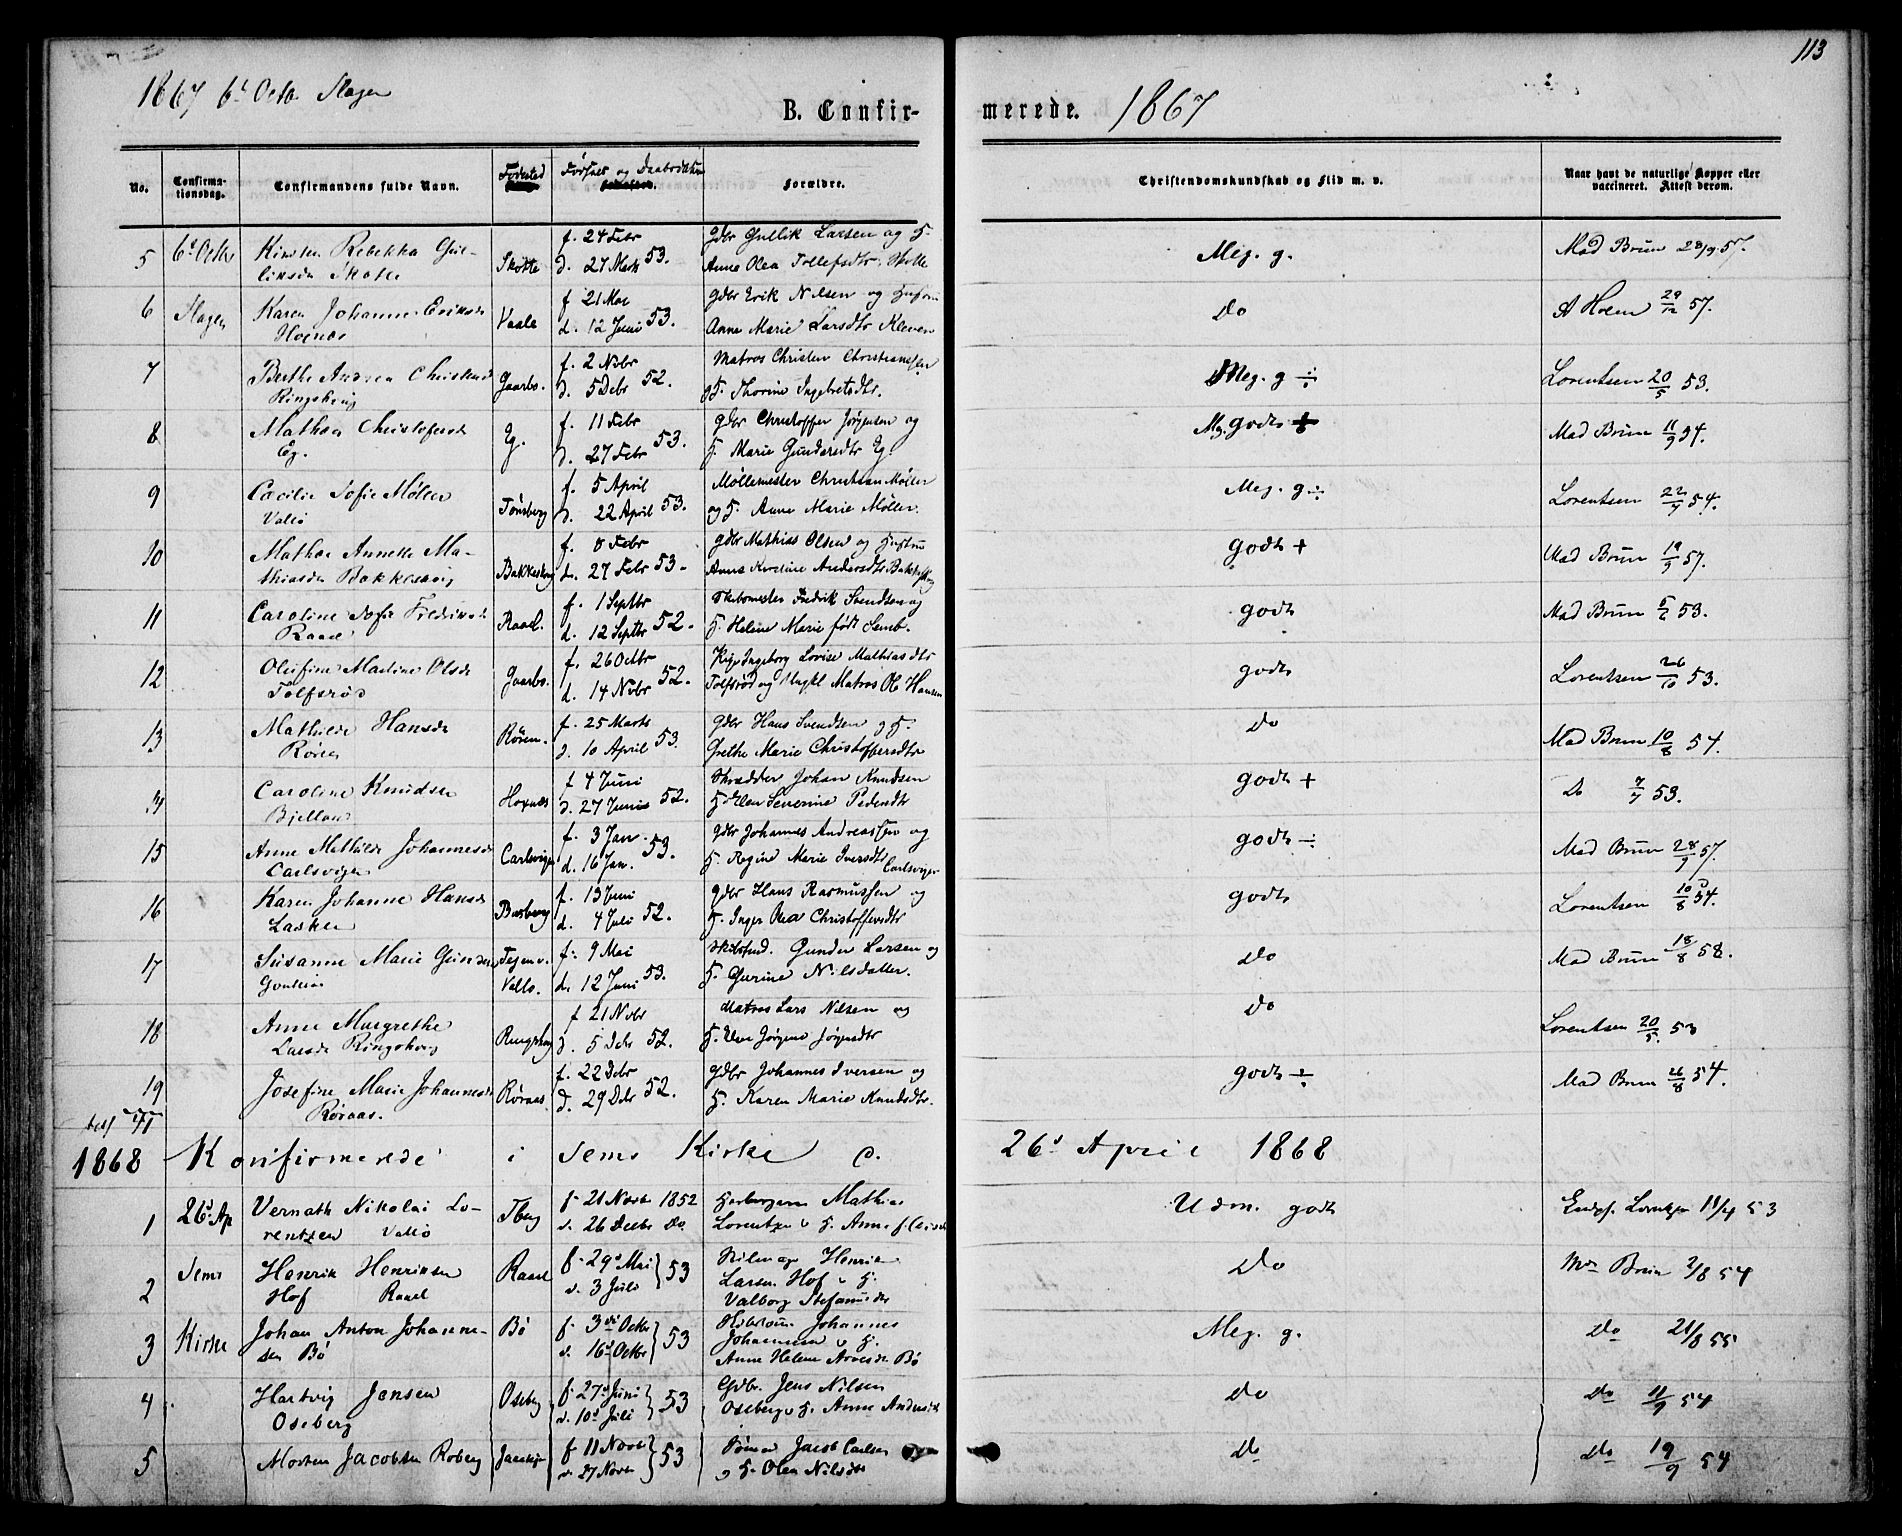 113
1867 6t Octb. Slagen
B. Confirmerede. 1867
No. Confirmationsdag. Confirmandens fulde Navn. Fødested Fødsels og Daabsdatum Forældre. Christendomskundskab og Flid m. v. Naar havt de naturlige Kopper eller vaccineret. Attest derom.
5 6t Octbr Kirsten Rebekka Gul- f. 24 Febr Gdbr Gullik Larsen og H.
liksdr Skotte Skotte d. 27 Marts 53. Anne Olea Tollefsdtr. Skotte Meg. g. Mad Brun 28/9 57.
6 Slagen Karen Johanne Eriksdr f 21 Mai Gdbr Erik Nilsen og Hustru
Hoxnæs Vaale d. 12 Juni 53. Anne Marie Larsdtr Kleven Do A Holm 29/12 57.
7 Berthe Andrea Christensdr f. 2 Nvbr Matros Christen Christiansen
Ringshoug Gaarbo. d. 5 Debr 52. og H. Thorine Ingebretsdtr. Meg. g ÷ Lorentsen 20/5 53.
8 Mathea Christofersdr f. 11 Febr Gdbr Christoffer Jørgensen og
Eg. Eg. d. 27 Febr 53. H. Marie Gundersdtr Eg. Mg. godt Mad Brun 11/9 54.
9 Cæcilie Sofie Møller f. 5 April Møllemester Christian Møller
Vallø Tønsberg d. 22 April 53. og H. Anne Marie Møller. Meg. g ÷ Lorentsen 22/7 54.
10 Mathea Annette Ma- f. 8 Febr Gdbr Mathias Olsen og Hustru
thiasdr Bakkeskoug Bakkeskoug d. 27 Febr 53. Anne Kirstine Andersdtr Bakkeskoug godt + Mad Brun 19/9 57.
11 Caroline Sofie Fredriksdr f. 1 Septbr Skibsmester Fredrik Svendsen og
Raael Raael. d. 12 Septbr 52. H. Helene Marie født Semb. godt Mad Brun 5/6 53.
12 Olefine Martine Olsdr f. 26 Octbr Pige Ingeborg Lovise Mathiasdtr
Tolfsrød Gaarbo. d. 14 Nvbr 52. Tolfsrød og Ungkl Matros Ole Hansen godt Lorentsen 26/10 53.
13 Mathilde Hansdr f. 25 Marts Gdbr Hans Svendsen og H.
Røren Røren. d. 10 April 53. Grethe Marie Christoffersdtr Do Mad Brun 10/8 54.
14 Caroline Knudsen f 4 Juni Skrædder Johan Knudsen
Bjelland Hoxnæs d. 27 Juni 52. H. Elen Severine Pedersdtr godt + Do 7/7 53.
15 Anne Mathilde Johannesdr f. 3 Jan. Gdbr Johannes Andreassen og
Carlsvigen Carlsvigen d. 16 Jan. 53. H. Regine Marie Iversdtr Carlsvigen godt ÷ Mad Brun 28/9 57.
16 Karen Johanne Hansdr f. 13 Juni Gdbr Hans Rasmussen og
Lasken Basberg d. 4 Juli 52. H. Inger Thea Christoffersdtr godt Lorentsen 10/8 54.
17 Susanne Marie Gundersdr Tejen v. f. 9 Mai Skibstmd. Gunder Larsen og
Vallø. d. 12 Juni 53. H. Gurine Nilsdatter. Do Mad Brun 18/8 58.
18 Anne Margrethe f 21 Nvbr Matros Lars Nilsen og
Larsdr Ringshoug Ringshoug d. 5 Debr 52. H. Elen Jørgine Jørgensdtr Do Lorentsen 20/5. 53
19 Josefine Marie Johannesdr f. 22 Debr Gdbr Johannes Iversen og
Røraas. Røraas d. 29 Debr 52. H. Karen Marie Knudsdtr. godt ÷ Mad Brun 26/8 54.
1868 Konfirmerede i Sems Kirke d. 26d April 1868
1 26d Ap Vernath Nikolai Lo- Tberg f. 21 Novbr 1852 Mathias
rentzen Vallø d. 26 Decbr Do. Lorentzen & H. Anne Udm. godt 11/4 53
2 Sems Henrik Henriksen Raael f. 29d Mai Henrik
Hof Raael d. 3 Juli } 53 Larsen Hof & H.
Valborg Stefansdr Do Md Brun 2/8 54
3 Kirke Johan Anton Johanne- Bø f. 3die Octbr Johannes
sen Bø d. 16d Octbr } 53 Johannesen & H.
Anne Helene Arvesdr Bø Meg. g. Do 21/8 55
4 Hartvig Jensen Oseberg f. 27d Juni Gdbr. Jens Nilsen
Oseberg d. 10d Juli } 53 Oseberg & H. Anne Andersdr Do Do 11/9 54
5 Morten Jacobsen Roberg f 11 Novbr Jacob Carlsen
d 27 Novbr } 53 & H. Olea Nilsdtr Do Do 19/9 54